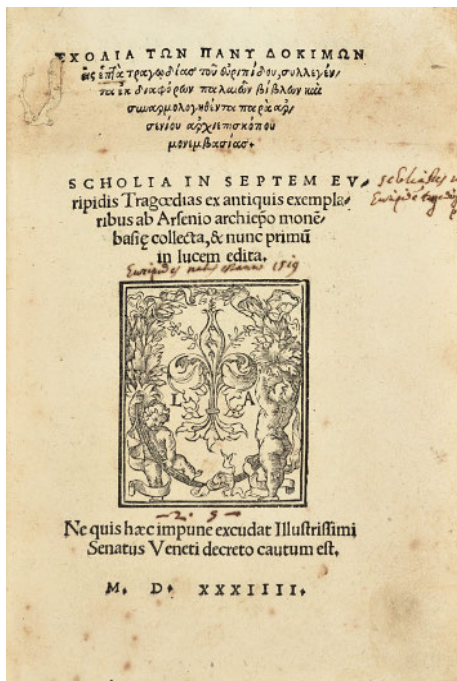 ΣΧΟΛΙΑ ΤΩΝ ΠΑΝΥ ΔΟΚΙΜΩΝ
εἰς ἑπτὰ τραγῳδίας τοῦ εὐριπίδου, συλλεγέν/
τα ἐκ διαφόρων παλαιῶν βίβλων καὶ
συναρμολογηθέντα παρὰ ἀρ/
σενίου ἀρχιεπισκόπου
μονεμβασίας.
SCHOLIA IN SEPTEM EV/
ripidis Tragœdias ex antiquis exempla/
ribus ab Arsenio archiepo monē/
basię collecta, & nunc primū
in lucem edita.
Euripides
1519
L A
Ne quis hæc impune excudat Illuſtriſſimi
Senatus Veneti decreto cautum eſt.
M. D. XXXIIII.